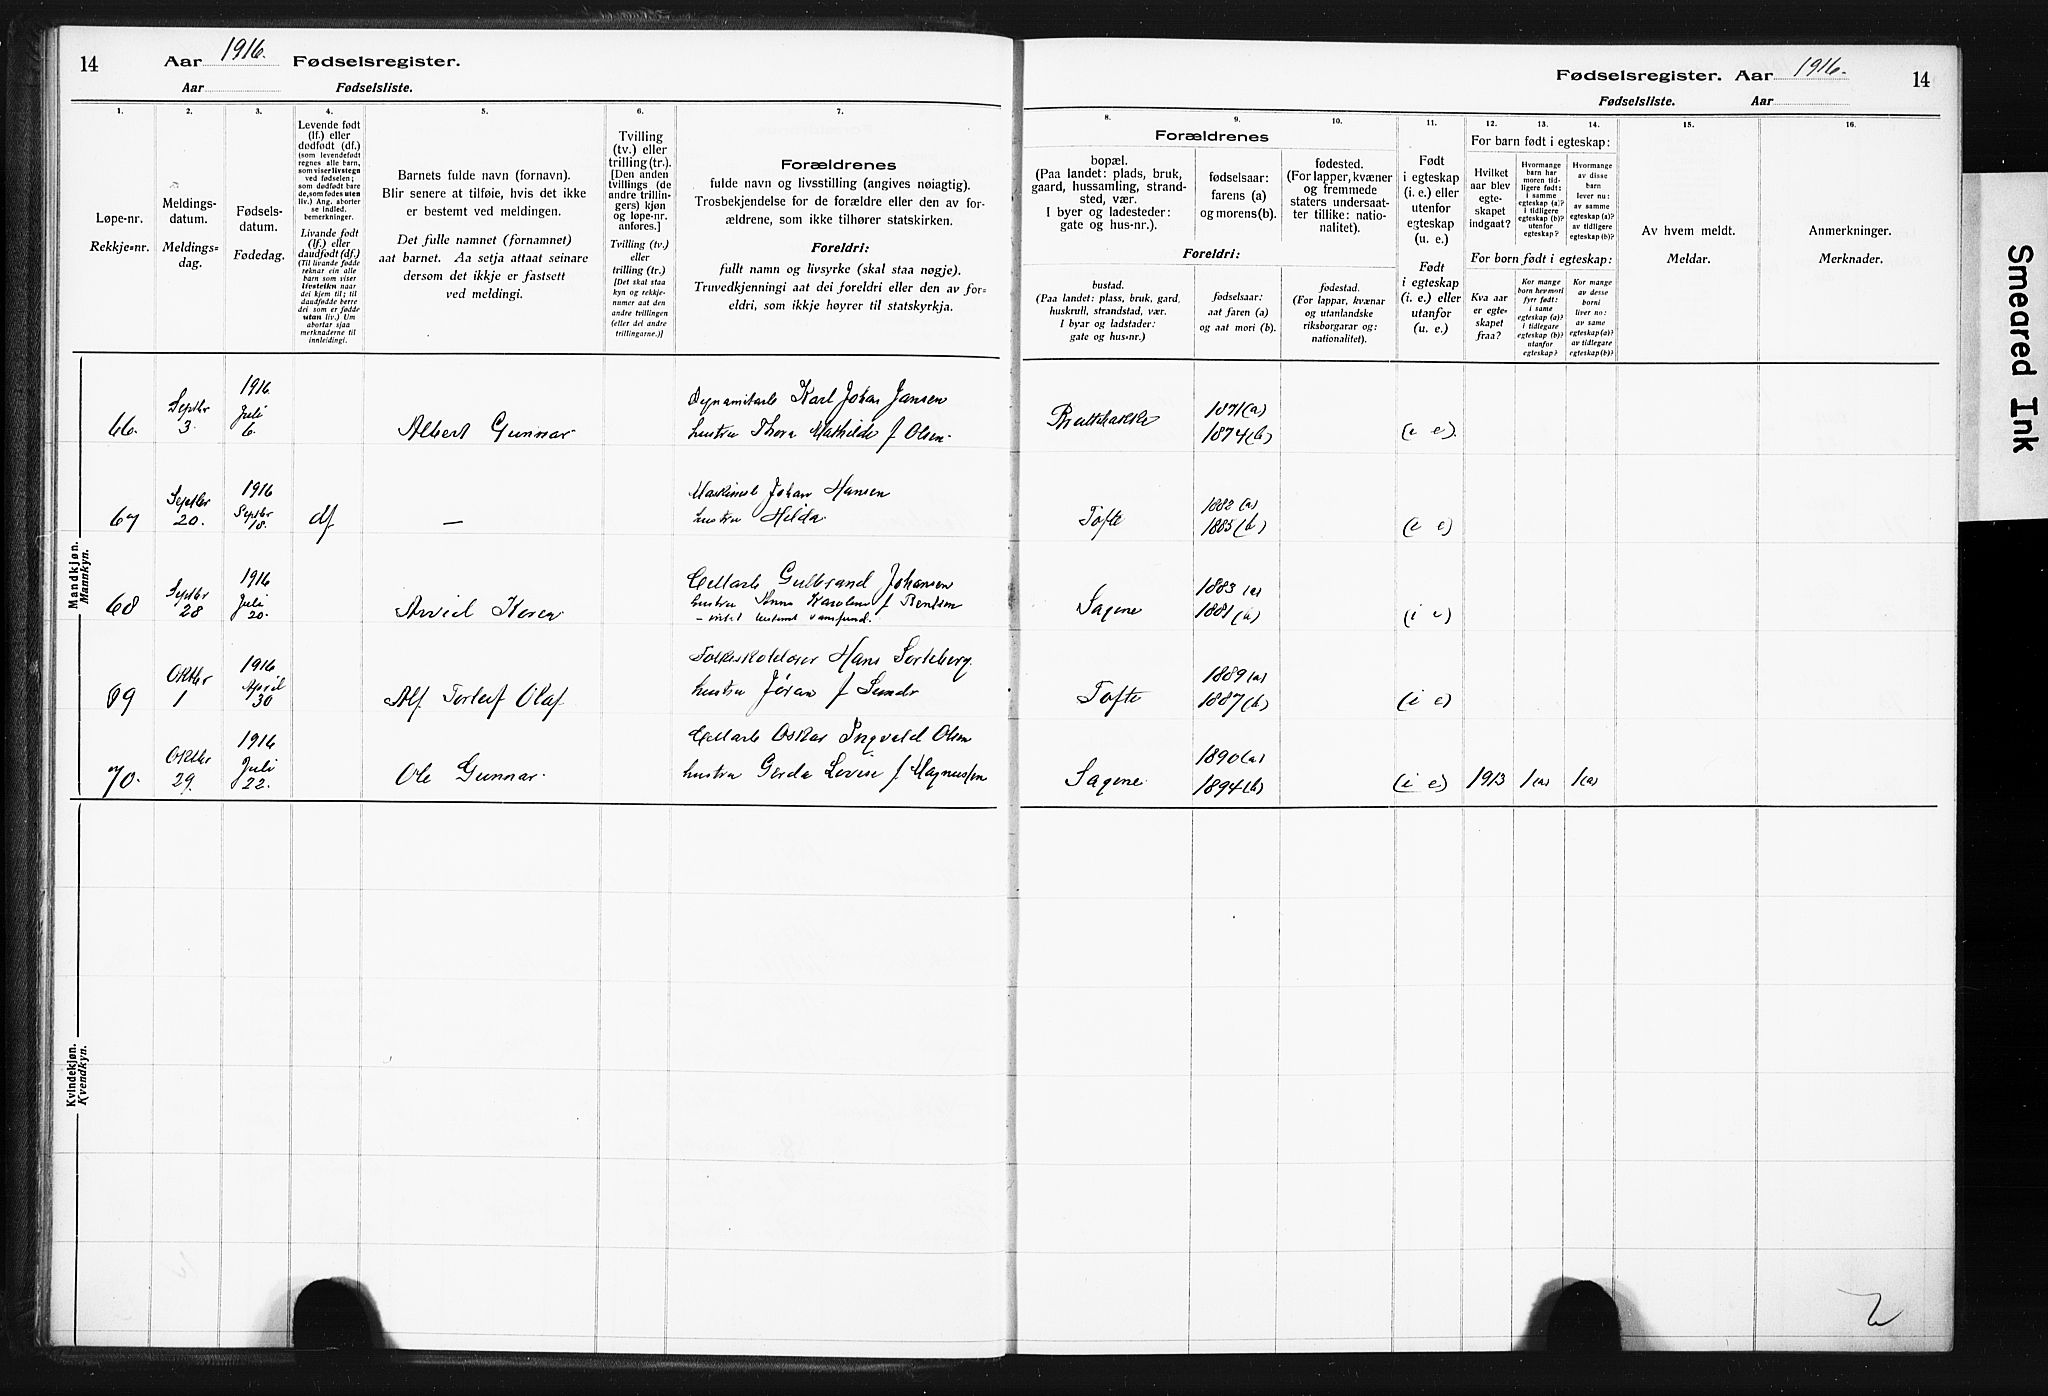 14 Aar 1916. Fødselsregister.
Aar Fødselsliste.
Fødselsregister. Aar 1916. 14
Fødselsliste. Aar
1.
Løpe-nr.
Rekkje-nr.
2.
Meldings-
datum.
Meldings-
dag.
3.
Fødsels-
datum.
Fødedag.
4.
Levende født
(lf.) eller
dødfødt (df.)
(som levendefødt
regnes alle barn,
som viser livstegn
ved fødselen;
som dødfødt bare
de, som fødes uten
liv.) Ang. aborter
se indled.
bemerkninger.
Livande født
(lf.) eller
daudfødt (df.)
(Til livande fødde
reknar ein alle
barn som viser
livsteikn naar
dei kjem til; til
daudfødde berre
dei som er fødde
utan liv.) Um
abortar sjaa
merknaderne til
innleidingi.
5.
Barnets fulde navn (fornavn).
Blir senere at tilføie, hvis det ikke
er bestemt ved meldingen.
Det fulle namnet (fornamnet)
aat barnet. Aa setja attaat seinare
dersom det ikkje er fastsett
ved meldingi.
6.
Tvilling
(tv.) eller
trilling (tr.).
[Den anden
tvillings (de
andre trillin-
gers) kjøn
og løpe-nr.
anføres.]
Tvilling (tv.)
eller
trilling (tr.)
[Det skal staa
kyn og rekkje-
numer aat den
andre tvillingen
(eller dei andre
trillingarne.)]
7.
Forældrenes
fulde navn og livsstilling (angives nøiagtig).
Trosbekjendelse for de forældre eller den av for-
ældrene, som ikke tilhører statskirken.
Foreldri:
fullt namn og livsyrke (skal staa nøgje).
Truvedkjenningi aat dei foreldri eller den av for-
eldri, som ikkje høyrer til statskyrkja.
8.
Forældrenes
bopæl.
(Paa landet: plads, bruk,
gaard, hussamling, strand-
sted, vær.
I byer og ladesteder:
gate og hus-nr.).
Foreldri:
bustad.
(Paa landet: plass, bruk, gard,
huskrull, strandstad, vær.
I byar og ladstader:
gate og hus-nr.)
9.
fødselsaar:
farens (a)
og morens (b).
fødselsaar:
aat faren (a)
og aat mori (b).
10.
fødested.
(For lapper, kvæner
og fremmede
staters undersaat-
ter tillike: natio-
nalitet).
fødestad.
(For lappar, kvænar
og utanlandske
riksborgarar og:
nationalitet).
11.
Født
i egteskap
(i. e.) eller
utenfor
egteskap
(u. e.)
Født
i egteskap
(i. e.) eller
utanfor
(u. e.)
12. 13. 14.
For barn født i egteskap:
Hvilket
aar blev
egte-
skapet
indgaat?
Hvormange
barn har
moren tid-
ligere født:
i samme
egteskap (a)?
i tidligere
egteskap (b)?
utenfor
egteskap?
Hvormange
av disse
barn
lever nu:
av samme
egteskap (a)?
av tidligere
egteskap (b)?
For born født i egteskap:
Kva aar
er egte-
skapet
fraa?
Kor mange
born hev mori
fyrr født:
i same
egteskap (a)?
i tidlegare
egteskap (b)?
utanfor
egteskap?
Kor mange
av desse
borni
liver no:
av same
egteskap (a)?
av tidlegare
egteskap (b)?
15.
Av hvem meldt.
Meldar.
16.
Anmerkninger.
Merknader.
Mandkjøn.
Mannkyn.
66. Septbr 3. 1916 Juli 6. Albert Gunnar Dynamitarb Karl Johan Jansen
hustru Thora Mathilde f Olsen 1871 (a) 1874 (b) (i e).
67 Septbr 20. 1916 Septbr 18. df — Maskinist Johan Hansen
hustru Hilda Tofte 1882 (a) 1883 (b) (i e)
68 Septbr 28 1916 Juli 20. Arvid Cellarb Gulbrand Johansen
hustru Anna Karoline f Berntsen
Sagene 1883 (a) 1881 (b) (i e)
69 Oktbr 1 1916 April 30 Alf Torleif Olaf Hans
hustru Jøran f Sunde Tofte 1889 (a) 1887 (b) (i e)
70. Oktbr 29. 1916 Juli 22. Ole Gunnar. Cellarb Oskar Ingvald Olsen
hustru Gerda Lovise f Magnussen Sagene 1890 (a) 1894 (b) (i e) 1913 1 (a) 1 (a)
Kvindekjøn.
Kvendkyn.
Smeared Ink